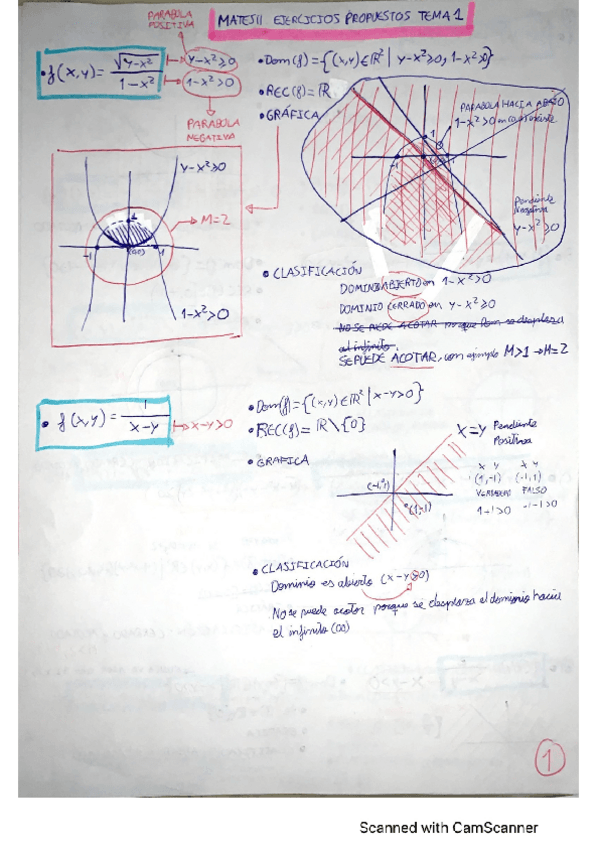 MATES II EJERCICIOS PROPUESTOS TEMA 1
PARABOLA
POSITIVA
• f(x,y) = √(y-x²) / 1-x²
y-x²≥0
1-x²>0
PARABOLA
NEGATIVA
• Dom(f) = {(x,y)∈ℝ² | y-x²≥0, 1-x²>0}
• REC(f) = ℝ
• GRÁFICA
PARABOLA HACIA ABAJO
1-x²>0
Pendiente
Negativa
y-x²>0
y-x²≥0
M=2
-1
1
1-x²>0
• CLASIFICACIÓN
DOMINIO ABIERTO en 1-x²>0
DOMINIO CERRADO en y-x²≥0
NO SE PUEDE ACOTAR porque Dom se desplaza
al infinito.
SE PUEDE ACOTAR, con ejemplo M>1 → M=2
• f(x,y) = 1 / x-y
x-y>0
• Dom(f) = {(x,y)∈ℝ² | x-y>0}
• REC(f) = ℝ\{0}
• GRAFICA
x=y Pendiente
Positiva
(-1,1)
(1,-1)
x y x y
(1,-1) (-1,1)
VERDADERO FALSO
1-1>0 -1-1>0
• CLASIFICACIÓN
Dominio es abierto (x-y>0)
No se puede acotar porque se desplaza el dominio hacia
el infinito (∞)
1
Scanned with CamScanner